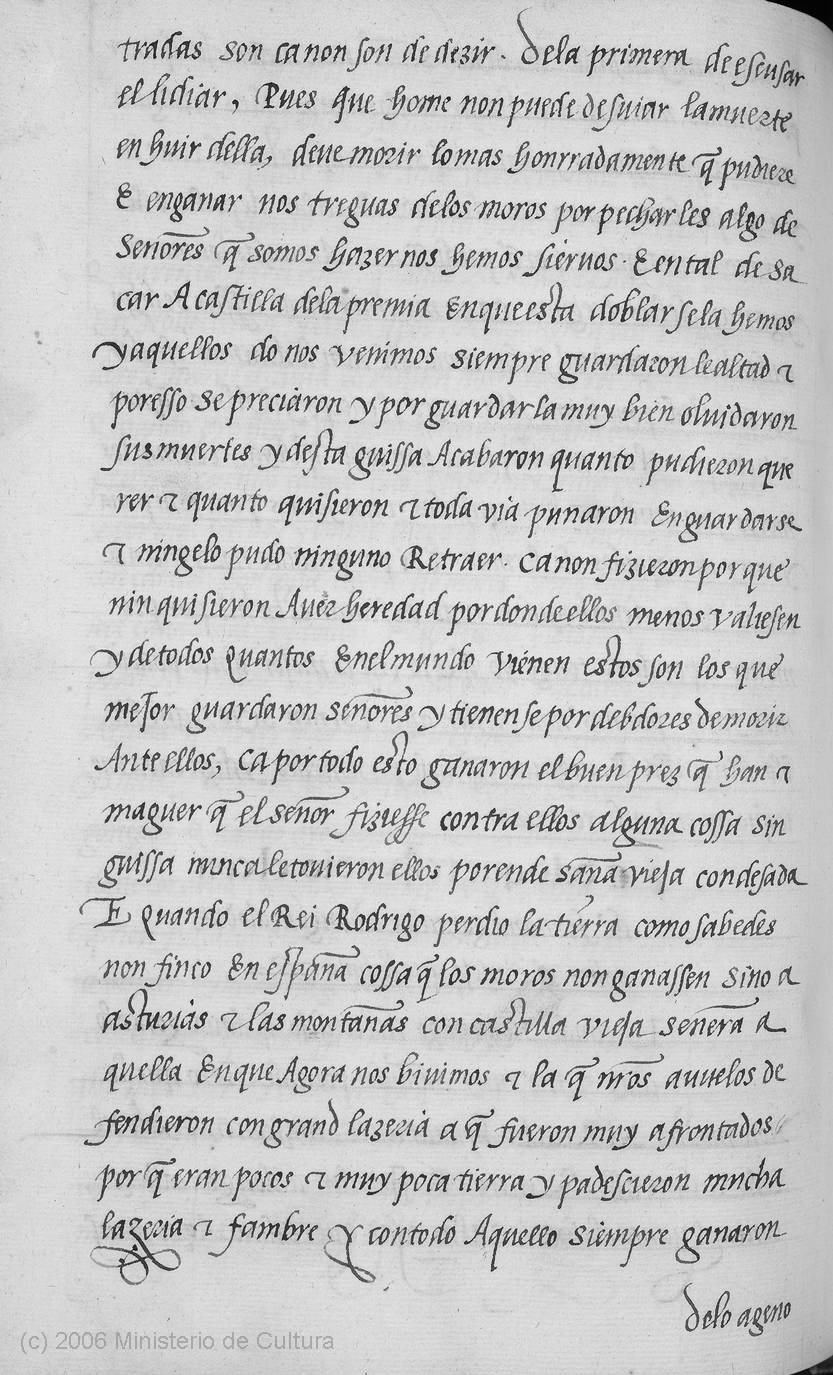 tradas son ca non son de dezir. Dela primera de escusar
el lidiar, Pues que home non puede desuiar la muerte
en huir della, deue morir lo mas honrradamente q̃ pudiere
E enganar nos treguas delos moros por pecharles algo de
Señores q̃ somos hazer nos hemos siervos. E en tal de sa
car A castilla dela premia En que esta doblar se la hemos
y aquellos do nos venimos siempre guardaron lealtad τ
por esso se preciaron y por guardar la muy bien oluidaron
sus muertes y desta guissa Acabaron quanto pudieron que
rer τ quanto quisieron τ toda via punaron En guardarse
τ nin gelo pudo ninguno Retraer. ca non fizieron por que
nin quisieron Auer heredad por donde ellos menos valiesen
y de todos quantos En el mundo vienen estos son los que
mejor guardaron señores y tienen se por debdores de morir
Ante ellos, ca por todo esto ganaron el buen prez q̃ han τ
maguer q̃ el señor fiziesse contra ellos alguna cossa sin
guissa nunca le tovieron ellos por ende saña vieja condesada
E quando el Rei Rodrigo perdio la tierra como sabedes
non finco En españa cossa q̃ los moros non ganassen sino a
asturias τ las montañas con castilla vieja señera a
quella En que Agora nos biuimos τ la q̃ nr̃os auuelos de
fendieron con grand lazeria a q̃ fueron muy afrontados
por q̃ eran pocos τ muy poca tierra y padescieron mucha
lazeria τ fambre y con todo Aquello siempre ganaron
delo ageno
(c) 2006 Ministerio de Cultura